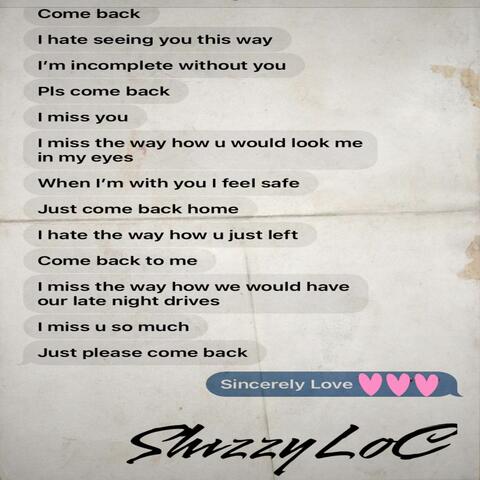 Come back
I hate seeing you this way
I'm incomplete without you
Pls come back
I miss you
I miss the way how u would look me
in my eyes
When I'm with you I feel safe
Just come back home
I hate the way how u just left
Come back to me
I miss the way how we would have
our late night drives
I miss u so much
Just please come back
Sincerely Love 🩷🩷🩷
Shizzy LoC